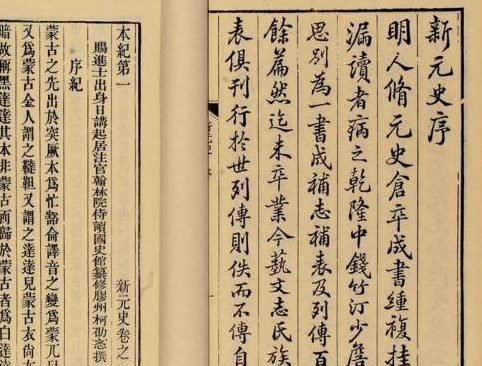 新元史序
明人脩元史倉卒成書緟複挂
漏讀者病之乾隆中錢竹汀少詹
思別為一書成補志補表及列傳百
餘篇然迄未卒業今藝文志氏族
表俱刊行於世列傳則佚而不傳自
本紀第一 新元史卷之
賜進士出身日講起居注官翰林院侍讀國史館纂修膠州柯劭忞撰
序紀
蒙古之先出於突厥本為忙豁侖譯音之變為蒙兀
又爲蒙古金人謂之韃靼又謂之達達兒蒙古衣尚
暗故稱黑達達其本非蒙古而歸於蒙古者爲白達